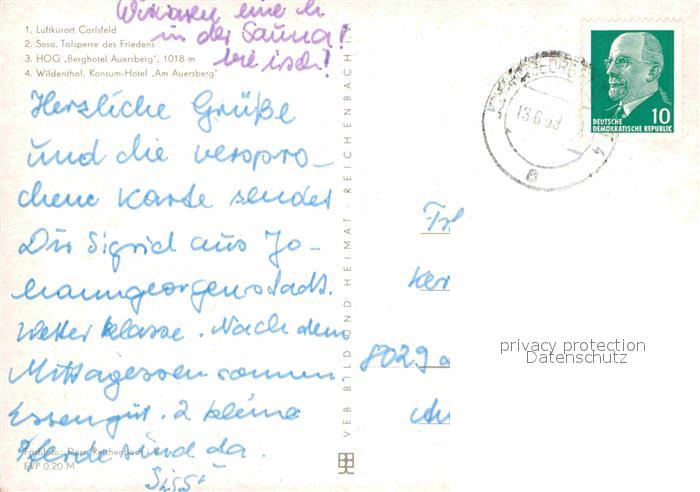 Wir waren eine h
in der Sauna!
1. Luftkurort Carlsfeld
2. Sosa, Talsperre des Friedens
3. HOG „Berghotel Auersberg", 1018 m
4. Wildenthal, Konsum-Hotel „Am Auersberg"
Herzliche Grüße
und die verspro-
chene Karte sendet
Dir Sigrid aus Jo-
hanngeorgenstadt.
Wetter klasse. Nach dem
Mittagessen sonnen
Essen gut. 2 kleine
Pferde sind da.
EVP 0,20 M
VEB BILD UND HEIMAT · REICHENBACH
13.6.
DEUTSCHE
DEMOKRATISCHE REPUBLIK
10
8029
privacy protection
Datenschutz